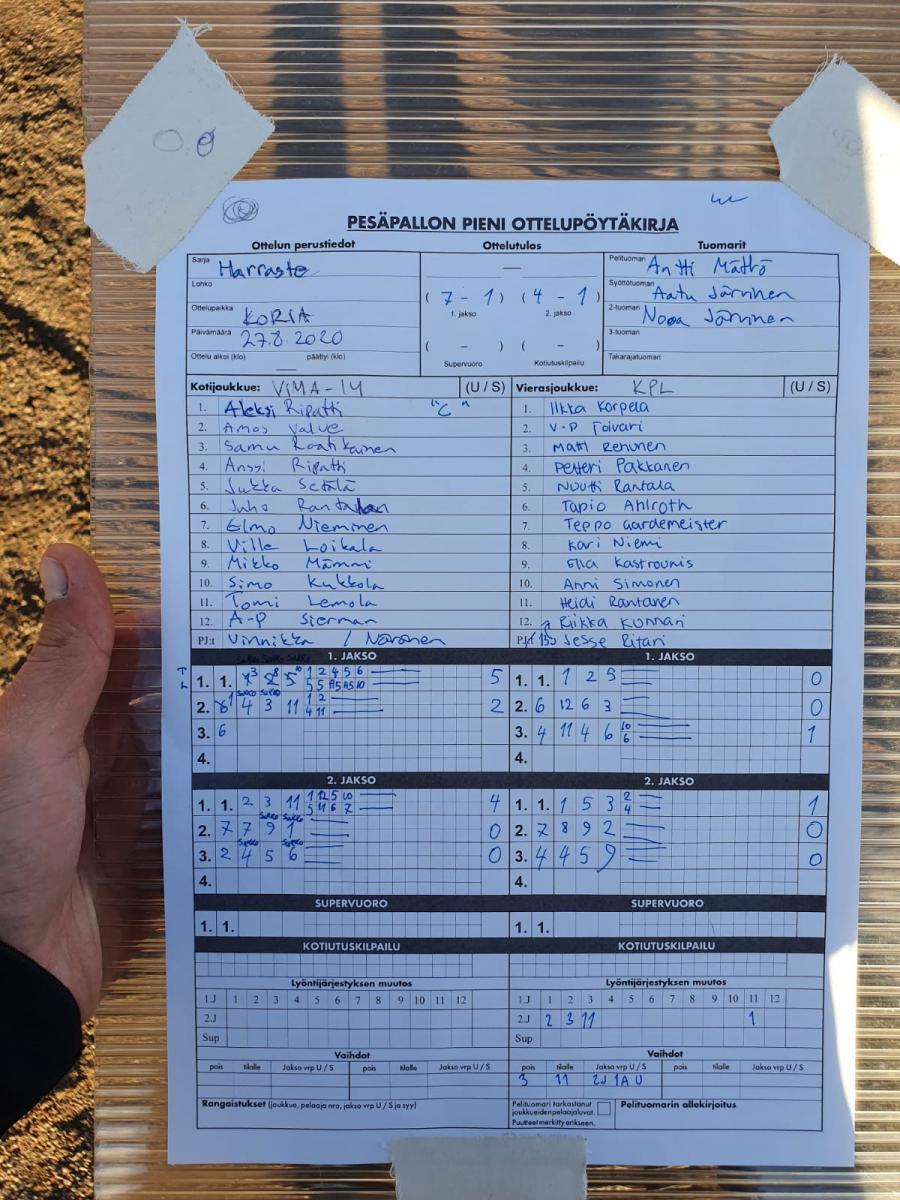 PESÄPALLON PIENI OTTELUPÖYTÄKIRJA
Ottelun perustiedot Ottelutulos Tuomarit
Sarja Harraste — Pelituomari Antti Mättö
Lohko Syöttötuomari Aatu Järvinen
Ottelupaikka KORIA ( 7 - 1 ) ( 4 - 1 ) 2-tuomari Nooa Järvinen
1. jakso 2. jakso
Päivämäärä 27.8.2020 3-tuomari
Ottelu alkoi (klo) — päättyi (klo) ( - ) ( - ) Takarajatuomari
Supervuoro Kotiutuskilpailu
Kotijoukkue: ViMA-14 (U / S) Vierasjoukkue: KPL (U / S)
1. Aleksi Ripatti "C" 1. Ilkka Korpela
2. Amos Valve 2. V-P Toivari
3. Samu 3. Matti
4. Anssi Ripatti 4. Petteri Pakkanen
5. Jukka Setälä 5. Nuutti Rantala
6. Juho 6. Tapio Ahlroth
7. Elmo Nieminen 7. Teppo Gardemeister
8. Ville Loikala 8. Kari Niemi
9. Mikko Mämmi 9. Ella Kastrounis
10. Simo Kukkola 10. Anni Simonen
11. Tomi Lemola 11. Heidi Rantanen
12. A-P Sierman 12. Riikka Kunnari
PJ:t Vinnikka / Naronen Jesse Ritari
1. JAKSO 1. JAKSO
1. 1. 5 1. 1. 1 2 5 0
2. 4 3 11 2 2. 6 12 6 3 0
3. 6 3. 4 11 4 6 10 6 1
4. 4.
2. JAKSO 2. JAKSO
1. 1. 2 3 11 4 1. 1. 1 5 3 2 4 1
2. 7 7 9 1 0 2. 7 8 9 2 0
3. 2 4 5 6 0 3. 4 4 5 9 0
4. 4.
SUPERVUORO SUPERVUORO
1. 1. 1. 1.
KOTIUTUSKILPAILU KOTIUTUSKILPAILU
Lyöntijärjestyksen muutos Lyöntijärjestyksen muutos
1J 1 2 3 4 5 6 7 8 9 10 11 12 1J 1 2 3 4 5 6 7 8 9 10 11 12
2J 2J 2 3 11 1
Sup Sup
Vaihdot Vaihdot
pois tilalle Jakso vrp U / S pois tilalle Jakso vrp U / S pois tilalle Jakso vrp U / S pois tilalle Jakso vrp U / S
3 11 2J 1A U
Rangaistukset (joukkue, pelaaja nro, jakso vrp U / S ja syy) Pelituomari tarkastanut Pelituomarin allekirjoitus
joukkueidenpelaajaluvat.
Puutteet merkitty erikseen.